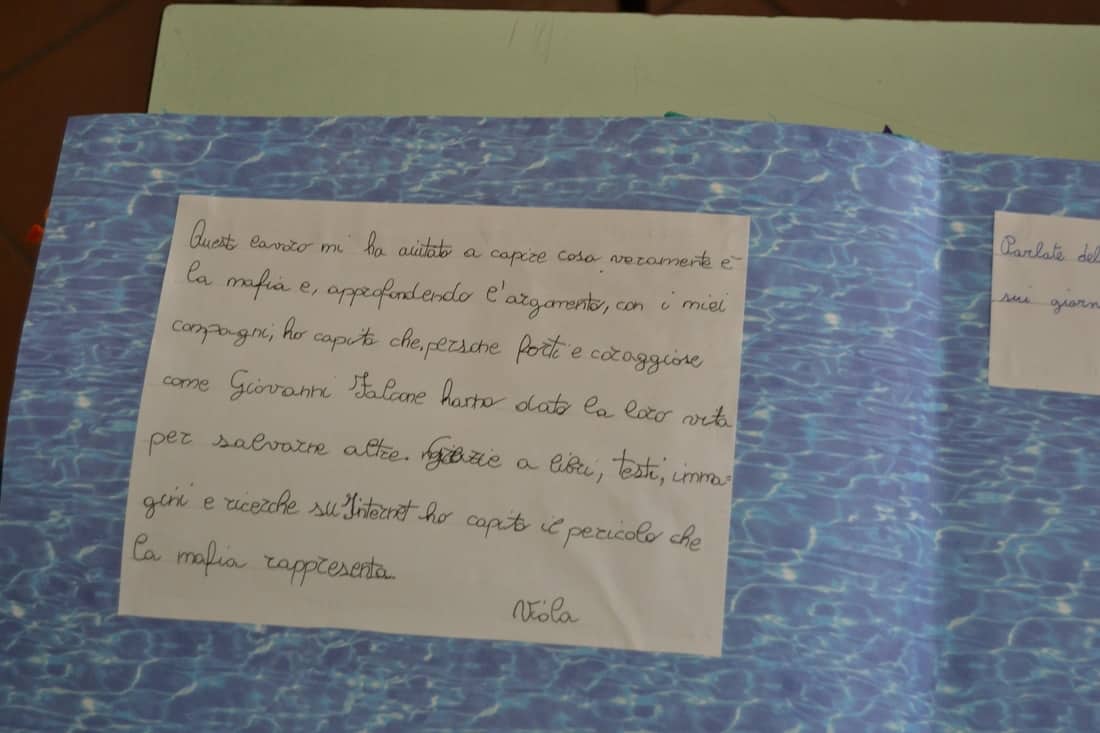 Questo lavoro mi ha aiutato a capire cosa veramente è
la mafia e, approfondendo l'argomento, con i miei
compagni, ho capito che, persone forti e coraggiose
come Giovanni Falcone hanno dato la loro vita
per salvarne altre. Grazie a libri, testi, imma-
gini e ricerche su Internet ho capito il pericolo che
la mafia rappresenta.
Viola
Parlate del
sui giorn